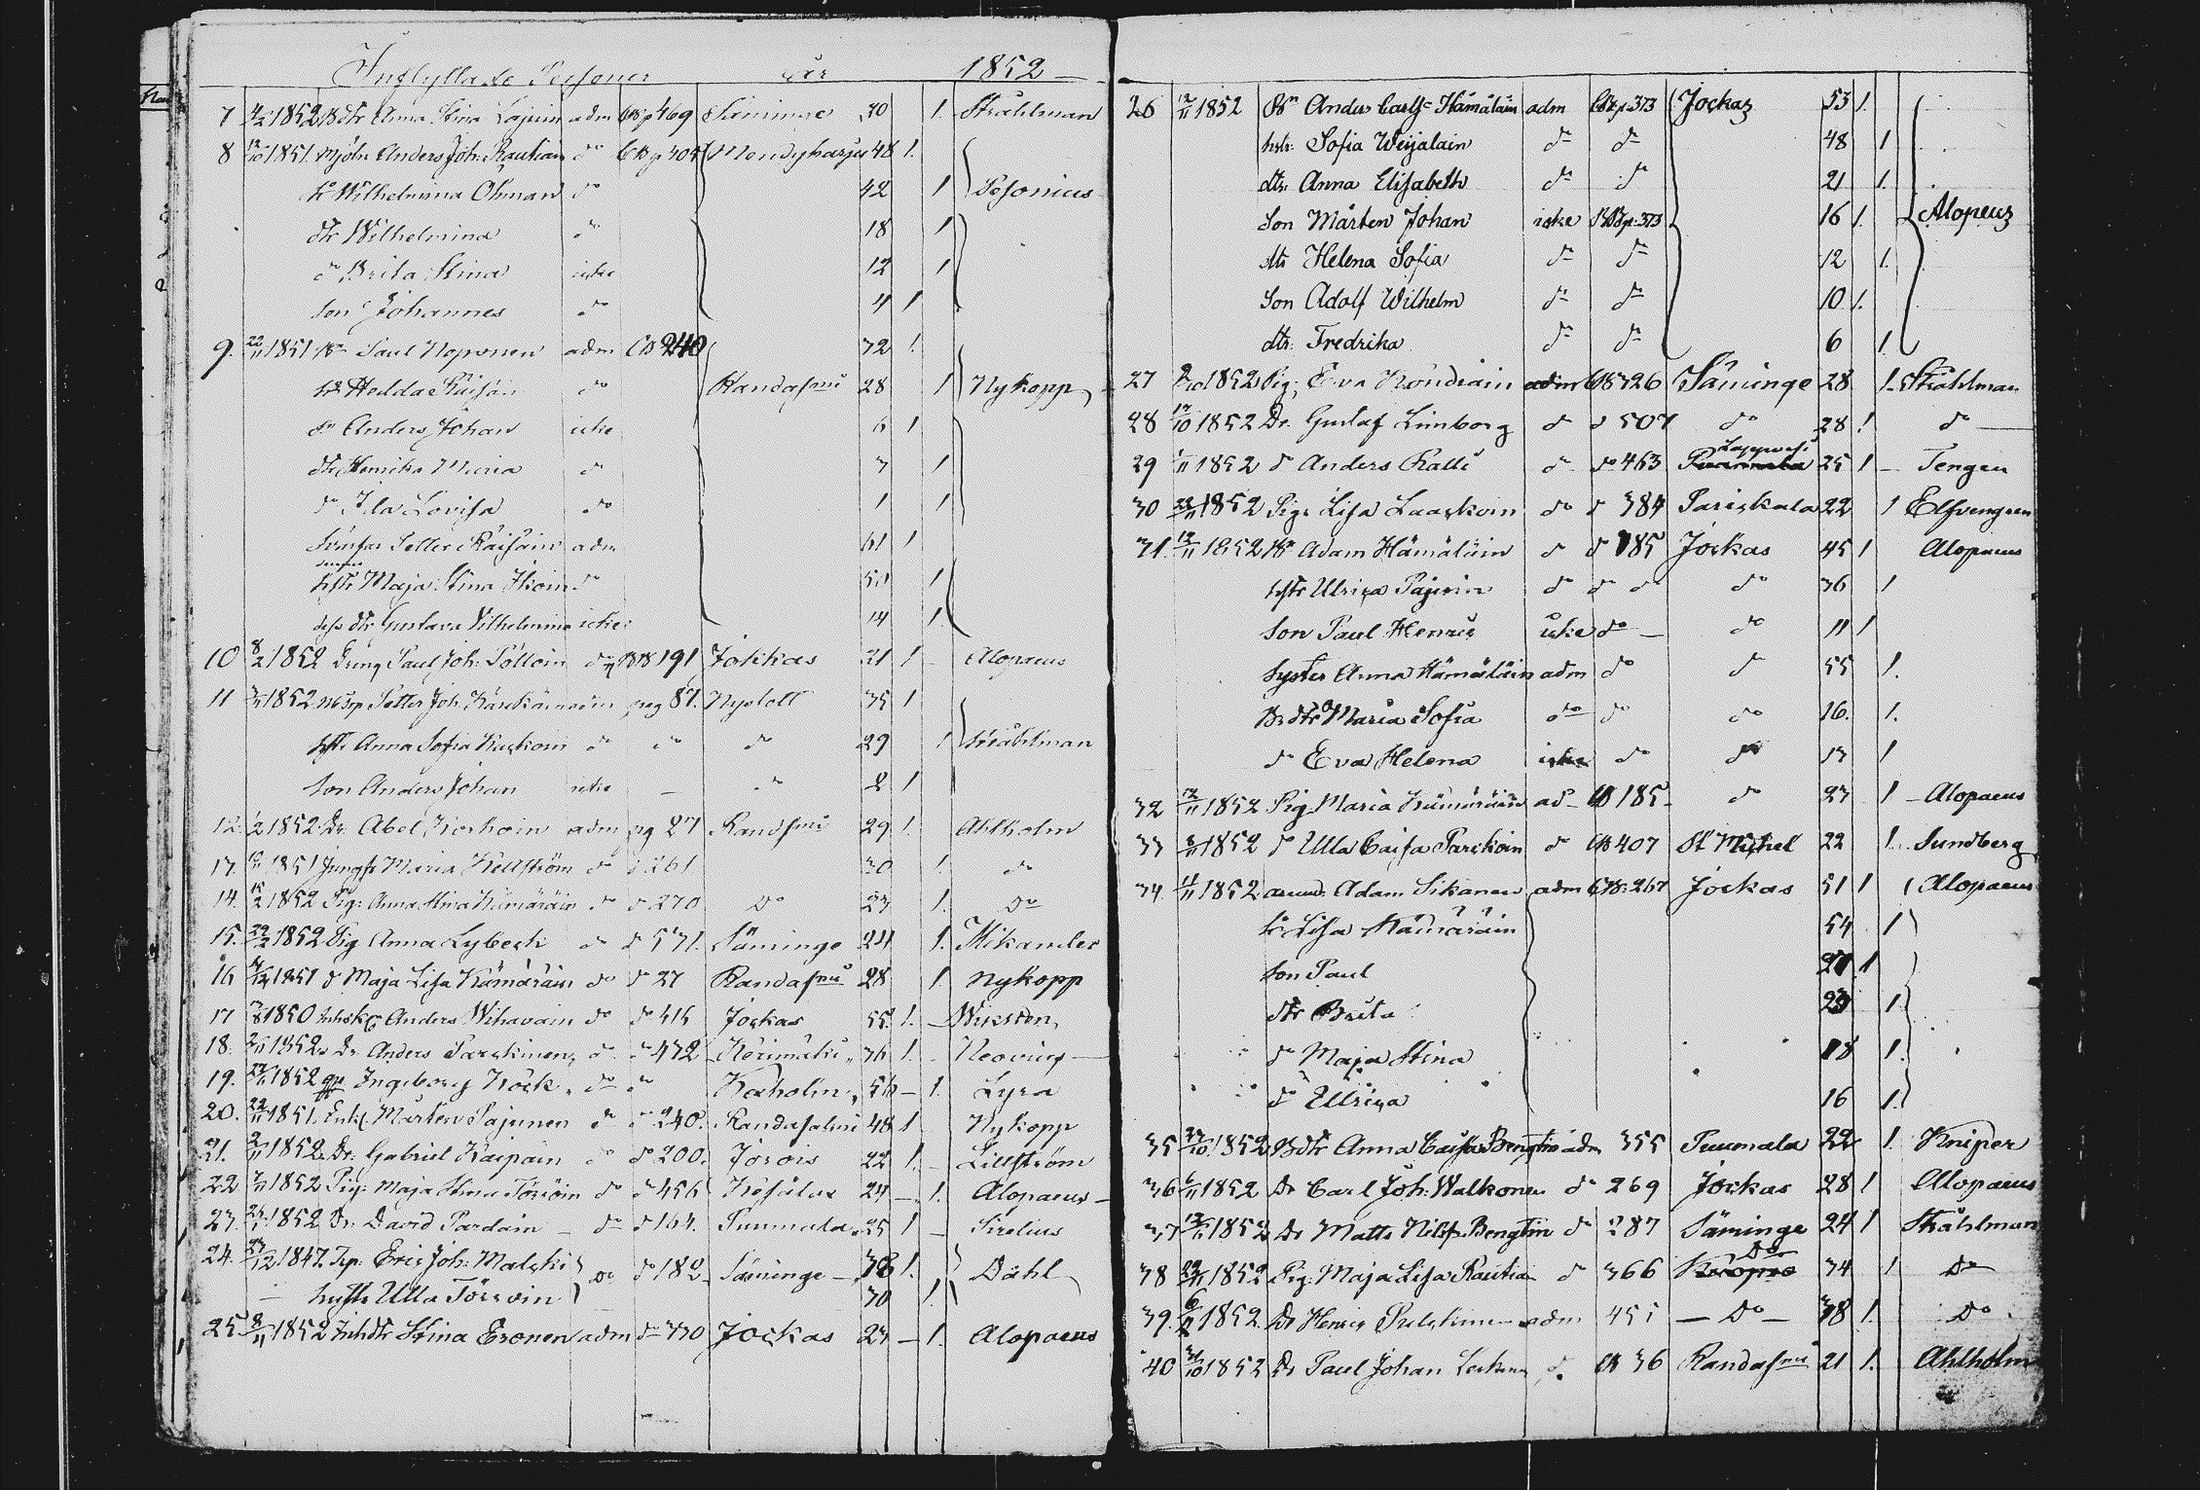 Inflyttade Personer år 1852
7 4/2 1852 Bdtr Anna Stina Lajuin adm CB p 469 Säminge 40 1. Stråhlman
8 1851. Mjöln Anders Joh: Rautian do CB p 404 Mendyharju 48 1.
h: Wilhelmina Öhman do 42 1 Pesonius
dtr Wilhelmina do 18 1
do Brita Stina icke 12 1
son Johannes do 4 1
9. 22/11 1851 Paul Noponen adm CB 240 32 1.
h: Hedda Räisän do Randasmi 28 1 Nykopp
Anders Johan icke 6 1
dtr Henrika Maria do 3 1
do Ida Lovisa do 1 1
Svärfar Petter Räisäin adm 61 1
hstr Maja Stina Ikoin do 50 1
dess dtr Gustava Vilhelmina icke 14 1
10 8/2 1852 Dräng Paul Joh: Pölloin do 191 Jokkas 21 1 Alopaeus
11 1852 Petter Joh: Kärkäinen adm pag 81. Nyslott 35 1
hstr Anna Sofia Kuskoin do do do 29 1 Stråhlman
son Anders Johan icke — " 2 1
12. 1852 Dr. Abel Korhoin adm pg 27 Randsmi 29 1. Ahlholm
13. 1851 Jungfr Maria Hellström do d 261 30 1. do
14. 15/2 1852 Pig: Anna Stina Kämäräin do d 270 Do 23 1. Do
15. 1852 Pig Anna Lybeck do d 531. Säminge 24 1. Stikander
16 1851 d Maja Lisa Kämäräin do d 27 Randasmi 28 1 Nykopp
17 1850 Inhsk: Anders Wihavain do do 416 Jockas 55 1. Wirsten
18. 1852 Dr Anders Parskinen do do 472 Kerimäki 36 1. Neovius
19. 1852 Ingeborg Höök do do Kexholm 56 — 1. Lyra
20. 22/11 1851. Enkl. Mårten Pajunen do do 240. Randasalmi 48 1 Nykopp
21. 2/11 1852 Dr: Gabriel Kaipain do do 200. Jorois 22 1. Lillström
22 1852 Pig: Maja Stina Törröin do do 456 Hesälax 24 — 1. Alopaeus —
23. 1852 Dr. David Pardain — do d 164. Puumala 25 1 — Sirelius
24. 1847. Erig Joh: Malski do do 182. Säminge — 38 1. Dahl
hustr Ulla Törroin 30 1.
25. 8/11 1852 Inhdtr Stina Eronen adm do 330 Jockas 23 — 1. Alopaeus
26 12/11 1852 Bn Anders Carls: Hämäläin adm CB p 373 Jockas 53 1.
hstr: Sofia Weijalain do do 48 1
dtr. Anna Elisabeth do do 21 1.
Son Mårten Johan icke BB p 373 16 1. Alopeus
dtr Helena Sofia do do 12 1.
Son Adolf Wilhelm do do 10 1.
dtr: Fredrika do do 6 1
27 1852 Pig: Eva Kondrain adm CB 326 Säminge 28 1. Stråhlman
28 17/10 1852 Dr. Gustaf Limborg d d 507 do 28 1 do
29 1852 d Anders Ralli d do 463 Lappvesi 25 1 — Tengen
30 1852 Piga Lisa Laaskoin do d 384 Pariskala 22 1 Elfvengren
31. 12/11 1852 Bn Adam Hämäläin d d 185 Jockas 45 1 Alopaeus
hstr Ulrica Pajuin d d d do 36 1
Son Paul Henric icke do — do 11 1
Syster Anna Hämäläin adm do do 55 1.
Br. dtr Maria Sofia do do do 16. 1.
d Eva Helena icke do do 13 1
32 12/11 1852 Pig. Maria Kämäräin ad- CB 185 — do 23 1 — Alopaeus
33 1852 d Ulla Caisa Parskoin d CB 407 St Michel 22 1. Sundberg
34 11/11 1852 Adam Sikanen adm CB: 267 Jockas 51 1 Alopaeus
h: Lisa Hämäräin 54 1
son Paul 1
dtr Brita 1
d Maja Stina 18 1.
d Ullrica 16 1.
35 1852 Bdtr Anna Caisa Bengtin adm 355 Puumala 22 1. Kniper
36 1852 Dr Carl Joh: Walkonen d 269 Jockas 28 1 Alopaeus
37 1852 Dr Matts Nils: Bengtin d 287 Säminge 24 1 Stråhlman
38 1852 Pig: Maja Lisa Rautia d 366 Do 34 1 Do
39. 1852 Dr Henric Pulskinen adm 455 — Do — 38 1. Do
40 31/10 1852 Dr Paul Johan d. CB 36 Randasmi 21 1. Ahlholm